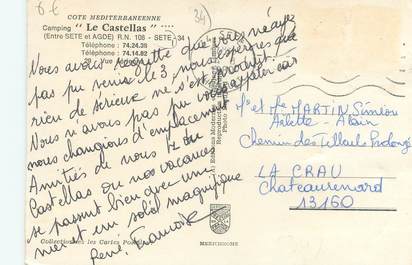 6 €
34
COTE MEDITERRANEENNE
Camping "Le Castellas" ****
(Entre SETE et AGDE) R.N. 108 - SETE - 34
Téléphone : 74.24.38
Téléphone : 74.14.82
Nous avons regretté que vous n'ayez
pas pu venir le 3 nous espérons que
rien de sérieux ne s'est produit.
Nous n'avons pas pu vous rappeler car
nous changions d'emplacement
Amitiés de nous 4 du
Castellas où nos vacances
se passent bien avec une
mer et un soleil magnifique
René, Francoise
Mr et Me MARTIN Siméon
Arlette - Alain
Chemin des Tellauts Prolongé
LA CRAU
Chateaurenard
13160
Collectionnez les Cartes Postales
MEXICHROME